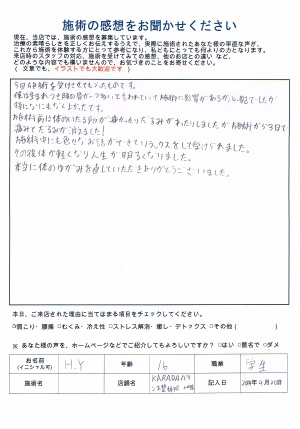 施術の感想をお聞かせください
現在、当店では、施術の感想を募集しています。
治療の素晴らしさを正しくお伝えするうえで、実際に施術されたあなた様の率直な声が、
これから施術を体験する方にとって参考になり、私どもにとっても何よりの力となります。
来店時のスタッフの対応、施術を受けてみての感想、他のお店との違い など、
どのような内容でも構いませんので、お気づきのことをお寄せください。
( 文章でも、イラストでも大歓迎です )
今日施術を受けさせてもらったものです。
特になにもなくよかったです。
施術前は体のいたる所が痛かったりだるみがあったりしましたが施術から3日で
痛みてだるみが消えました!
施術中にも色々なお話ができてリラックスをして受けられました。
その後体が軽くなり人生が明るくなりました。
本当に体のゆがみを直していただきありがとうございました。
本日、ご来店された理由に当てはまる項目をチェックしてください。
□肩こり・腰痛 □むくみ・冷え性 □ストレス解消・癒し・デトックス □その他( )
※ あなた様の声を、ホームページなどでご紹介してもよろしいですか? □はい □匿名で □ダメ
お名前 H.Y 年齢 16 職業 学生
(イニシャル可)
施術名 店舗名 KARADA 記入日